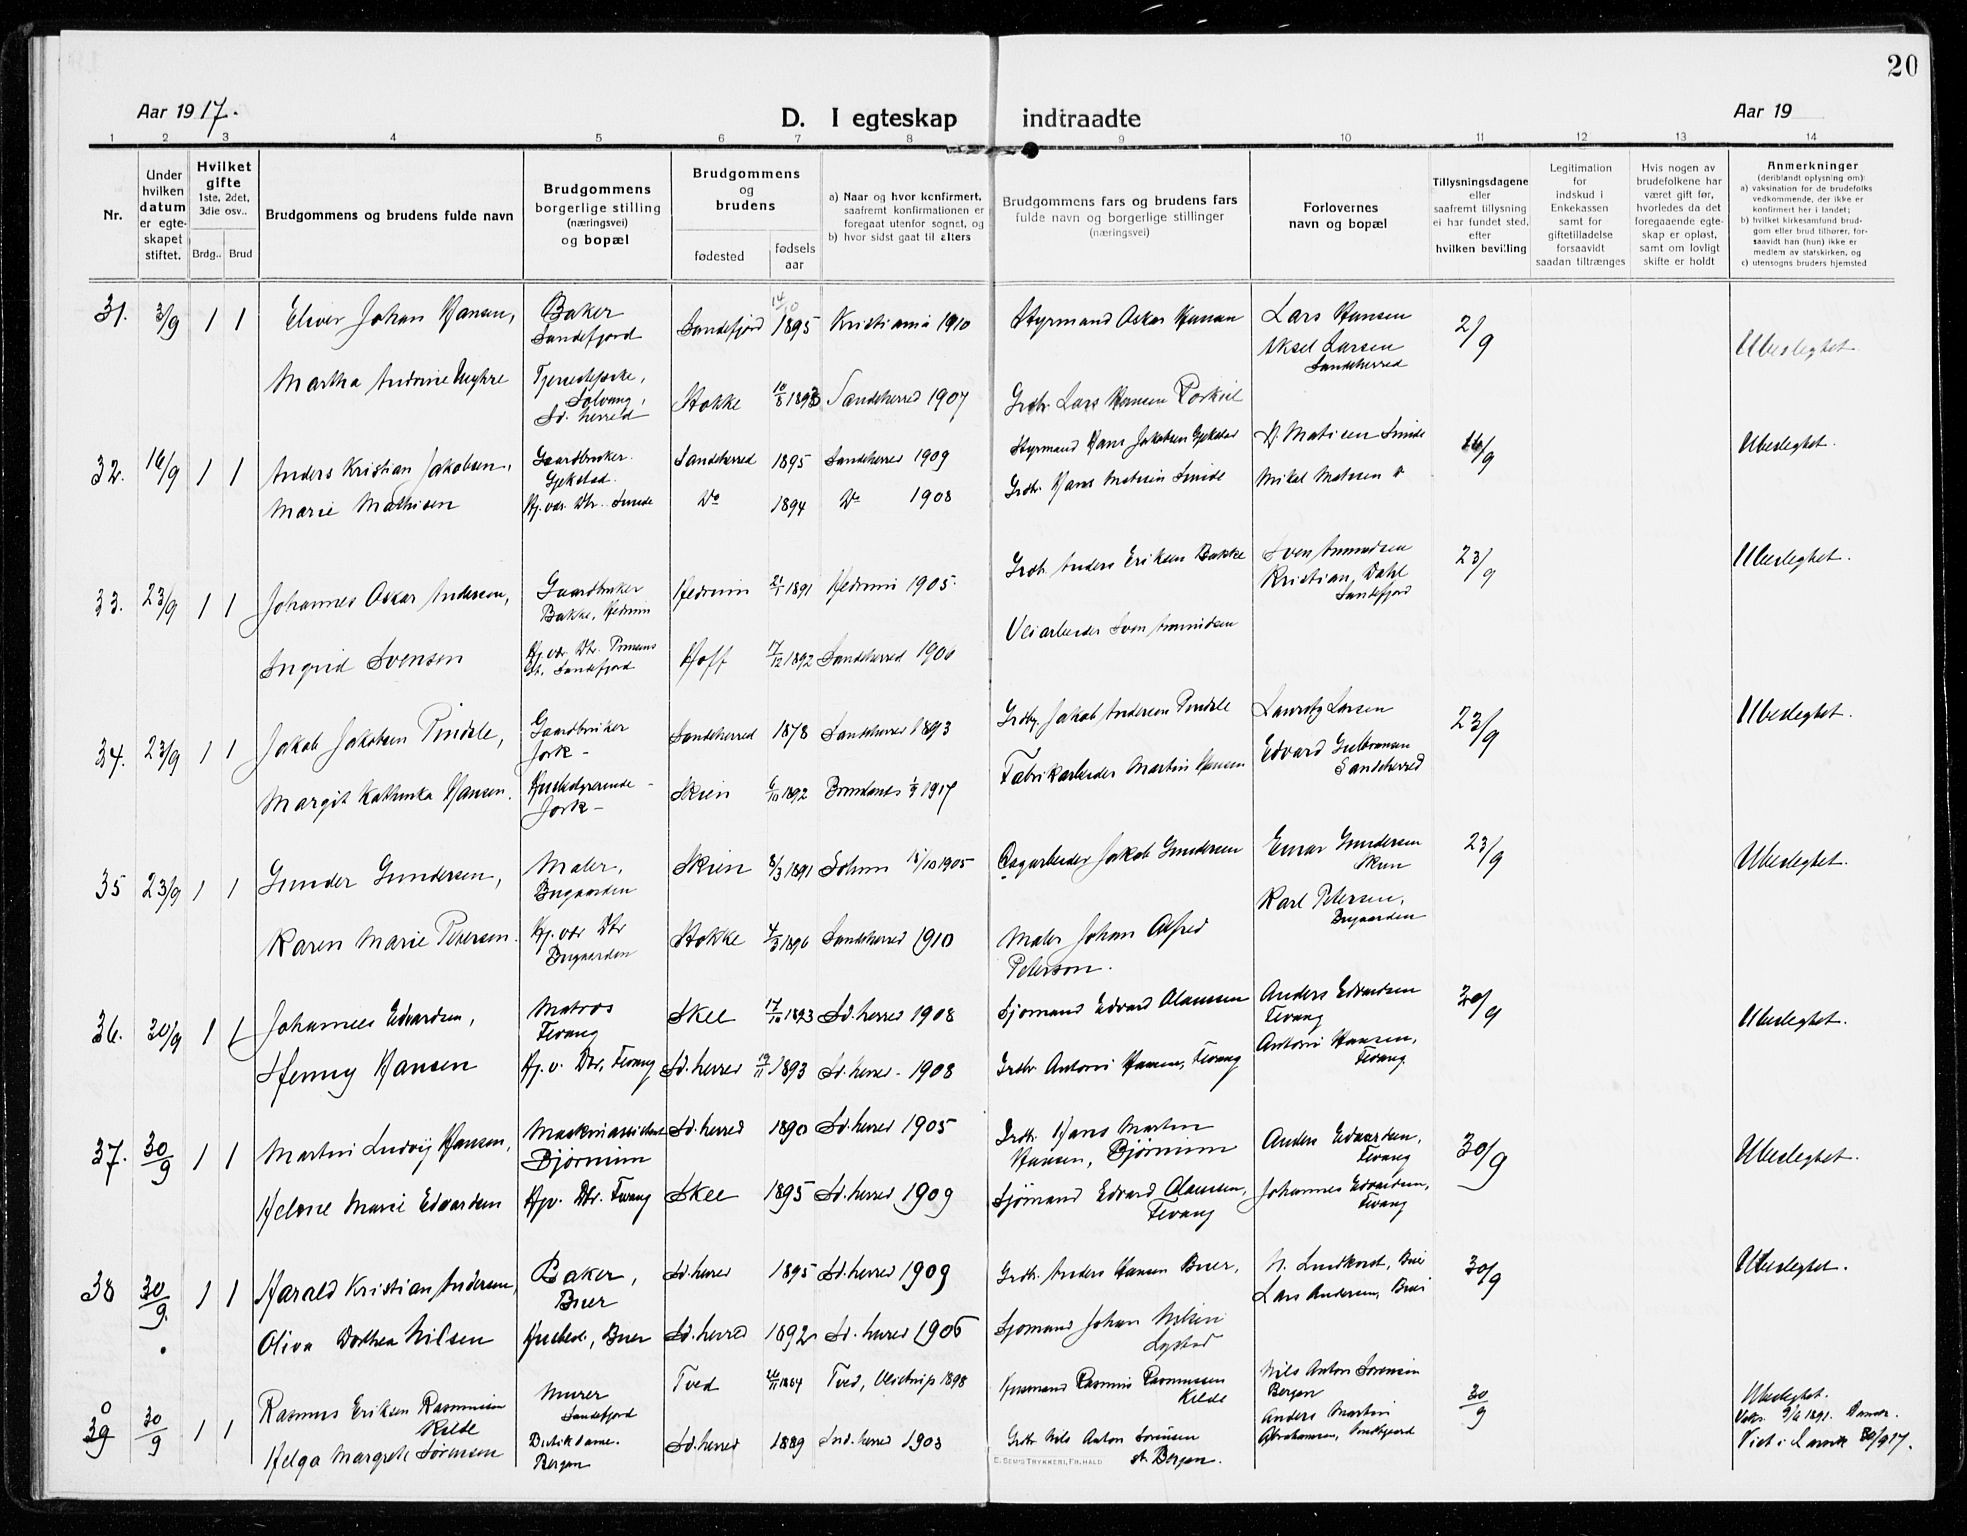 20
Aar 1917.
D. I egteskap indtraadte
Aar 19
1 2 3 4 5 6 7 8 9 10 11 12 13 14
Nr.
Under hvilken datum er egteskapet stiftet.
Hvilket gifte
1ste, 2det, 3die osv..
Brdg.. Brud
Brudgommens og brudens fulde navn
Brudgommens borgerlige stilling (næringsvei) og bopæl
Brudgommens og brudens
fødested
fødsels aar
a) Naar og hvor konfirmert, saafremt konfirmationen er foregaat utenfor sognet, og
b) hvor sidst gaat til alters
Brudgommens fars og brudens fars fulde navn og borgerlige stillinger (næringsvei)
Forlovernes navn og bopæl
Tillysningsdagene eller saafremt tillysning ei har fundet sted, efter hvilken bevilling
Legitimation for indskud i Enkekassen samt for giftetilladelse forsaavidt saadan tiltrænges
Hvis nogen av brudefolkene har været gift før, hvorledes da det foregaaende egteskap er opløst, samt om lovligt skifte er holdt
Anmerkninger
(deriblandt oplysning om):
a) vaksination for de brudefolks vedkommende, der ikke er konfirmert her i landet;
b) hvilket kirkesamfund brudgom eller brud tilhører, forsaavidt han (hun) ikke er medlem av statskirken, og
c) utensogns bruders hjemsted
31. 3/9 1 1 Elever Johan Hansen, Baker Sandefjord Sandefjord 14/10 1895 Kristiania 1910 Styrmand Oskar Hansen Lars Hansen 2/9 Ubeslegtet.
Aksel Larsen Sandeherred
Martha Andrine Solvang, Sd. herred Stokke 10/8 1893 Sandeherred 1907 Grdbr. Lars Hansen
32. 16/9 1 1 Anders Kristian Jakobsen, Gaardbruker. Gjekstad. Sandeherred 1895 Sandeherred 1909 Styrmand Hans Jakobsen Gjekstad Matisen 16/9 Ubeslegtet.
Marie Mathisen Hj. vær. Dtr. Do 1894 Do 1908 Grdbr. Hans Matisen Mikal Matisen
33. 23/9 1 1 Johannes Oskar Andersen, Gaardbruker Bakke, Hedrum Hedrum 21/1 1891 Hedrum 1905. Grdbr. Anders Eriksen Bakke Sven Amundsen 23/9 Ubeslegtet.
Kristian Dahl Sandefjord
Ingrid Svensen Hj. vær. Dtr. Sandefjord Hoff 17/12 1892 Sandeherred 1906 Veiarbeider Sven Amundsen
34. 23/9 1 1 Jakob Jakobsen Pindsle, Gaardbruker Sandeherred 1878 Sandeherred 1893 Jakob Andersen Pindsle Lauritz Larsen 23/9 Ubeslegtet.
Edvard Gulbransen Sandeherred
Margit Kathinka Hansen. Husbestyrerinde Skien 6/10 1892 1917 Fabrikarbeider Martin Hansen
35 23/9 1 1 Gunder Gundersen, Maler, Bugaarden Skien 8/3 1891 Solum 15/10 1905 Jakob Gundersen Einar Gundersen Skien 23/9 Ubeslegtet.
Karl Petersen, Bugaarden
Karen Marie Petersen. Hj. vær Dtr Bugaarden Stokke 4/3 1896 Sandeherred 1910 Maler Johan Alfred Peterson.
36. 30/9 1 1 Johannes Edvardsen, Matros Fevang Skee 17/10 1893 Sd. herred 1908 Sjømand Edvard Olaussen Anders Edvardsen Fevang 30/9 Ubeslegtet.
Antoni Hansen, Fevang
Henny Hansen Hj. v. Dtr, Fevang Sd. herred 19/11 1893 Sd. herred - 1908 Grdbr. Antoni Hansen, Fevang
37. 30/9 1 1 Martin Ludvig Hansen, Maskinassistent Bjørnum Sd. herred 1890 Sd. herred 1905 Grdbr. Hans Martin Hansen, Bjørnum Anders Edvardsen, Fevang 30/9 Ubeslegtet.
Helene Marie Edvardsen Hjv. Dtr. Fevang Skee 1895 Sd. herred 1909 Sjømand Edvard Olaussen, Fevang Johannes Edvardsen, Fevang
38 30/9. 1 1 Harald Kristian Andersen, Baker, Buer Sd. herred 1895 Sd. herred 1909 Grdbr. Anders Hansen Buer, N. Lundkvist, Buer 30/9 Ubeslegtet.
Lars Andersen, Buer
Oliva Dorthea Nilsen Husbest., Buer Sd. herred 1892 Sd. herred 1906 Sjømand Johan Nilsen Lystad
39 30/9 1 1 Rasmus Eriksen Rasmussen Kilde Murer Sandefjord Tved 1864 Tved, 1898 Husmand Rasmus Rasmussen Kilde Nils Anton Sørensen Bergan 30/9 Ubeslegtet.
Anders Martin Abrahamsen, Sandefjord Vaks. 9/6 1891. Danm.
Helga Margrete Sørensen Butikdame. Bergan Sd. herred 1889 Snd. herred 1903 Grdbr. Nils Anton Sørensen st. Bergan. Viet i Larvik 30/9 17.
E. SEM'S TRYKKERI, FR. HALD